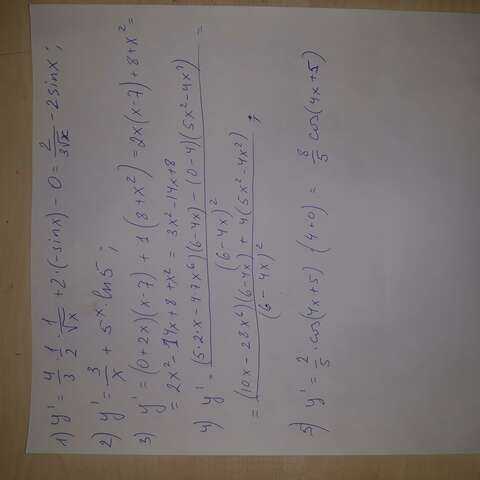 1) y' = 4/3 · 1/2 · 1/√x + 2·(-sinx) - 0 = 2/(3√x) - 2sinx;
2) y' = 3/x + 5^x · ln5;
3) y' = (0+2x)(x-7) + 1(8+x²) = 2x(x-7)+8+x² =
= 2x² - 14x + 8 + x² = 3x² - 14x + 8
4) y' = ((5·2·x - 4·7x⁶)(6-4x) - (0-4)(5x²-4x⁷))/(6-4x)² =
= ((10x - 28x⁶)(6-4x) + 4(5x²-4x²))/(6-4x)²;
5) y' = 2/5 · cos(4x+5) · (4+0) = 8/5 cos(4x+5)